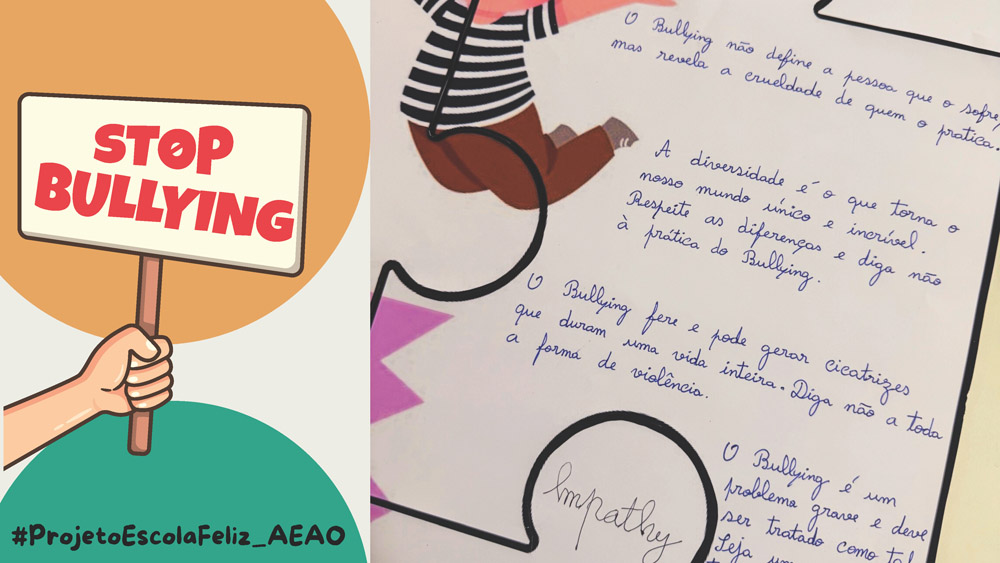 STOP
BULLYING
#ProjetoEscolaFeliz_AEAO
O Bullying não define a pessoa que o sofre,
mas revela a crueldade de quem o pratica.
A diversidade é o que torna o
nosso mundo único e incrível.
Respeite as diferenças e diga não
à prática do Bullying.
O Bullying fere e pode gerar cicatrizes
que duram uma vida inteira. Diga não a toda
a forma de violência.
O Bullying é um
problema grave e deve
ser tratado como tal
Seja um
Impathy